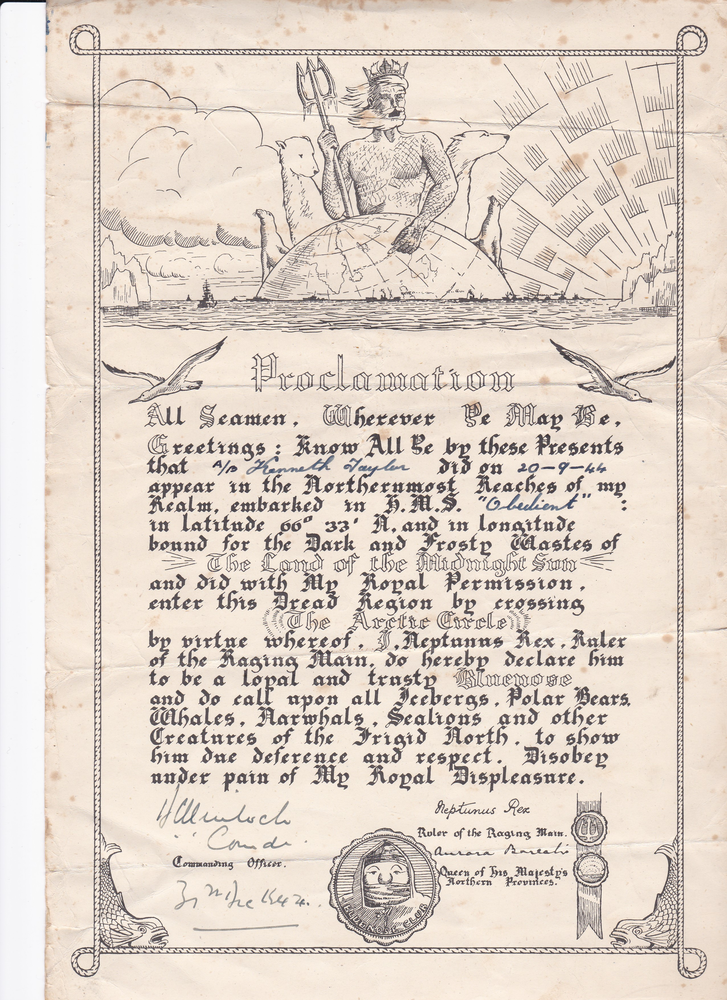 Proclamation
All Seamen, Wherever Ye May Be,
Greetings: Know All Ye by these Presents
that A/B Kenneth Taylor did on 20-9-44
appear in the Northernmost Reaches of my
Realm, embarked in H.M.S. "Obedient" :
in latitude 66° 33' N, and in longitude
bound for the Dark and Frosty Wastes of
The Land of the Midnight Sun
and did with My Royal Permission,
enter this Dread Region by crossing
The Arctic Circle
by virtue whereof, I, Neptunus Rex, Ruler
of the Raging Main, do hereby declare him
to be a loyal and trusty Bluenose
and do call upon all Icebergs, Polar Bears,
Whales, Narwhals, Sealions and other
Creatures of the Frigid North, to show
him due deference and respect. Disobey
under pain of My Royal Displeasure.
Comdr.
Commanding Officer.
Neptunus Rex
Ruler of the Raging Main.
Aurora Borealis
Queen of His Majesty's
Northern Provinces.
BLUENOSE CLUB